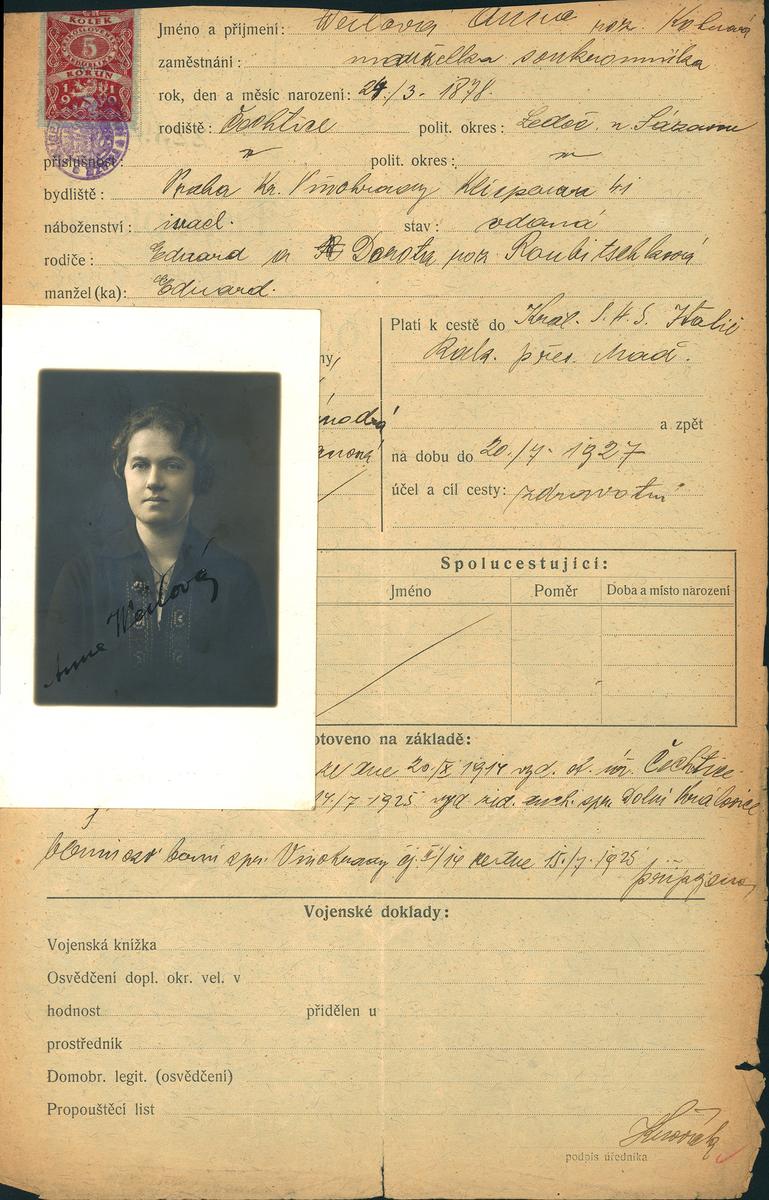 KOLEK
ČESKOSLOVENSKÁ
5
KORUN
1919
Jméno a příjmení: Weilová Anna roz. Kohnová
zaměstnání: manželka soukromníka
rok, den a měsíc narození: 24/3. 1878.
rodiště: Čechtice polit. okres: Ledeč n Sázavou
příslušnost: polit. okres:
bydliště: Praha Kr. Vinohrady 41
náboženství: israel. stav: vdaná
rodiče: Eduard a Dorota roz. Roubitscheková
manžel(ka): Eduard.
Platí k cestě do Král. S. H. S. Italie
Rak. přes Maď.
a zpět
na dobu do 20./7. 1927
účel a cíl cesty: zdravotní
Anna Weilová
Spolucestující:
Jméno Poměr Doba a místo narození
otoveno na základě:
ze dne 20/X 1914 vyd. ob. úř. Čechtice.
14./7 1925 vyd Dolní Královice
berní spr. Vinohrady čj. ze dne 15./7. 1925
připojeno
Vojenské doklady:
Vojenská knížka
Osvědčení dopl. okr. vel. v
hodnost přidělen u
prostředník
Domobr. legit. (osvědčení)
Propouštěcí list
podpis úředníka